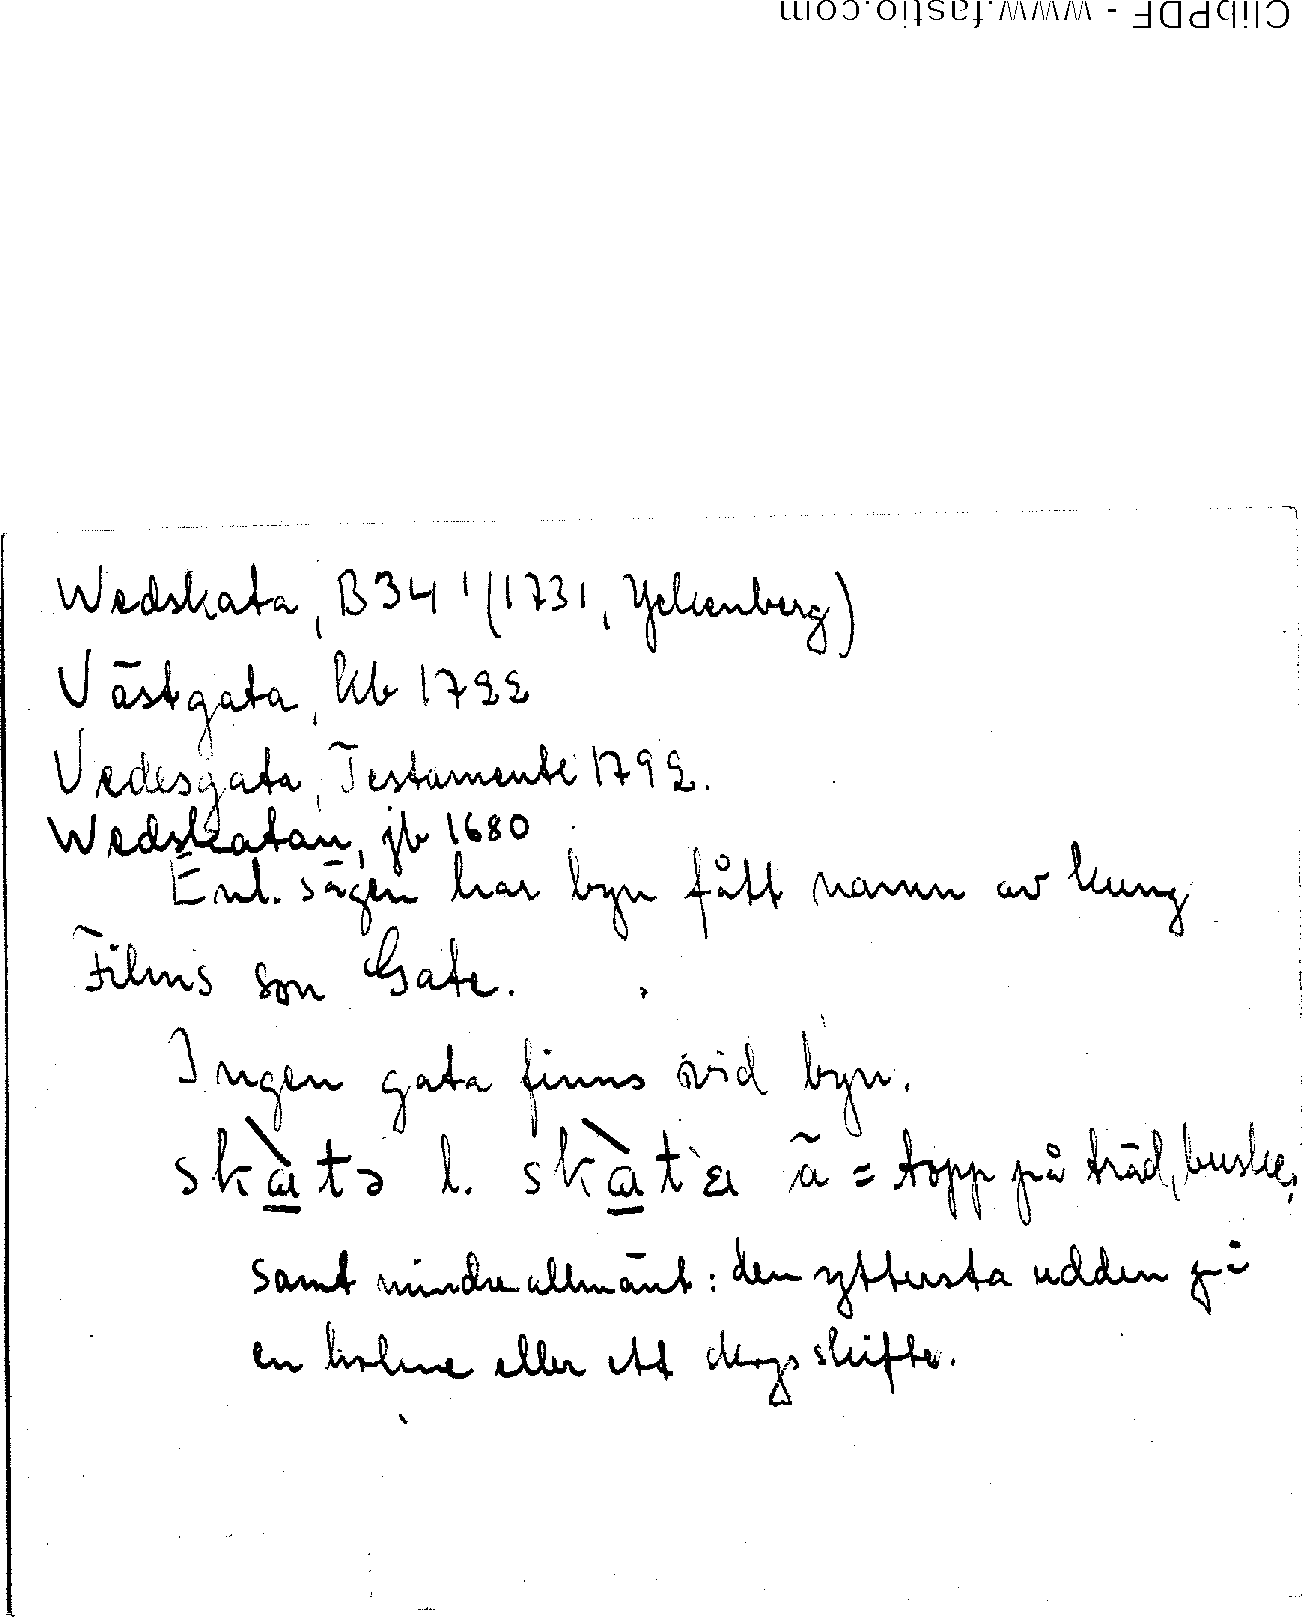 ClibPDF - www.fastio.com
Wedskata, B34 1 (1731, Yckenberg)
Västgata, kb 1722
Vedesgata, Testamente 1792.
Wedskatan, jb 1680
Enl. sägen har byn fått namn av kung
Films son Gate.
Ingen gata finns vid byn.
l. ä = topp på träd, buske,
samt mindre allmänt: den yttersta udden på
en holme eller ett skogsskifte.